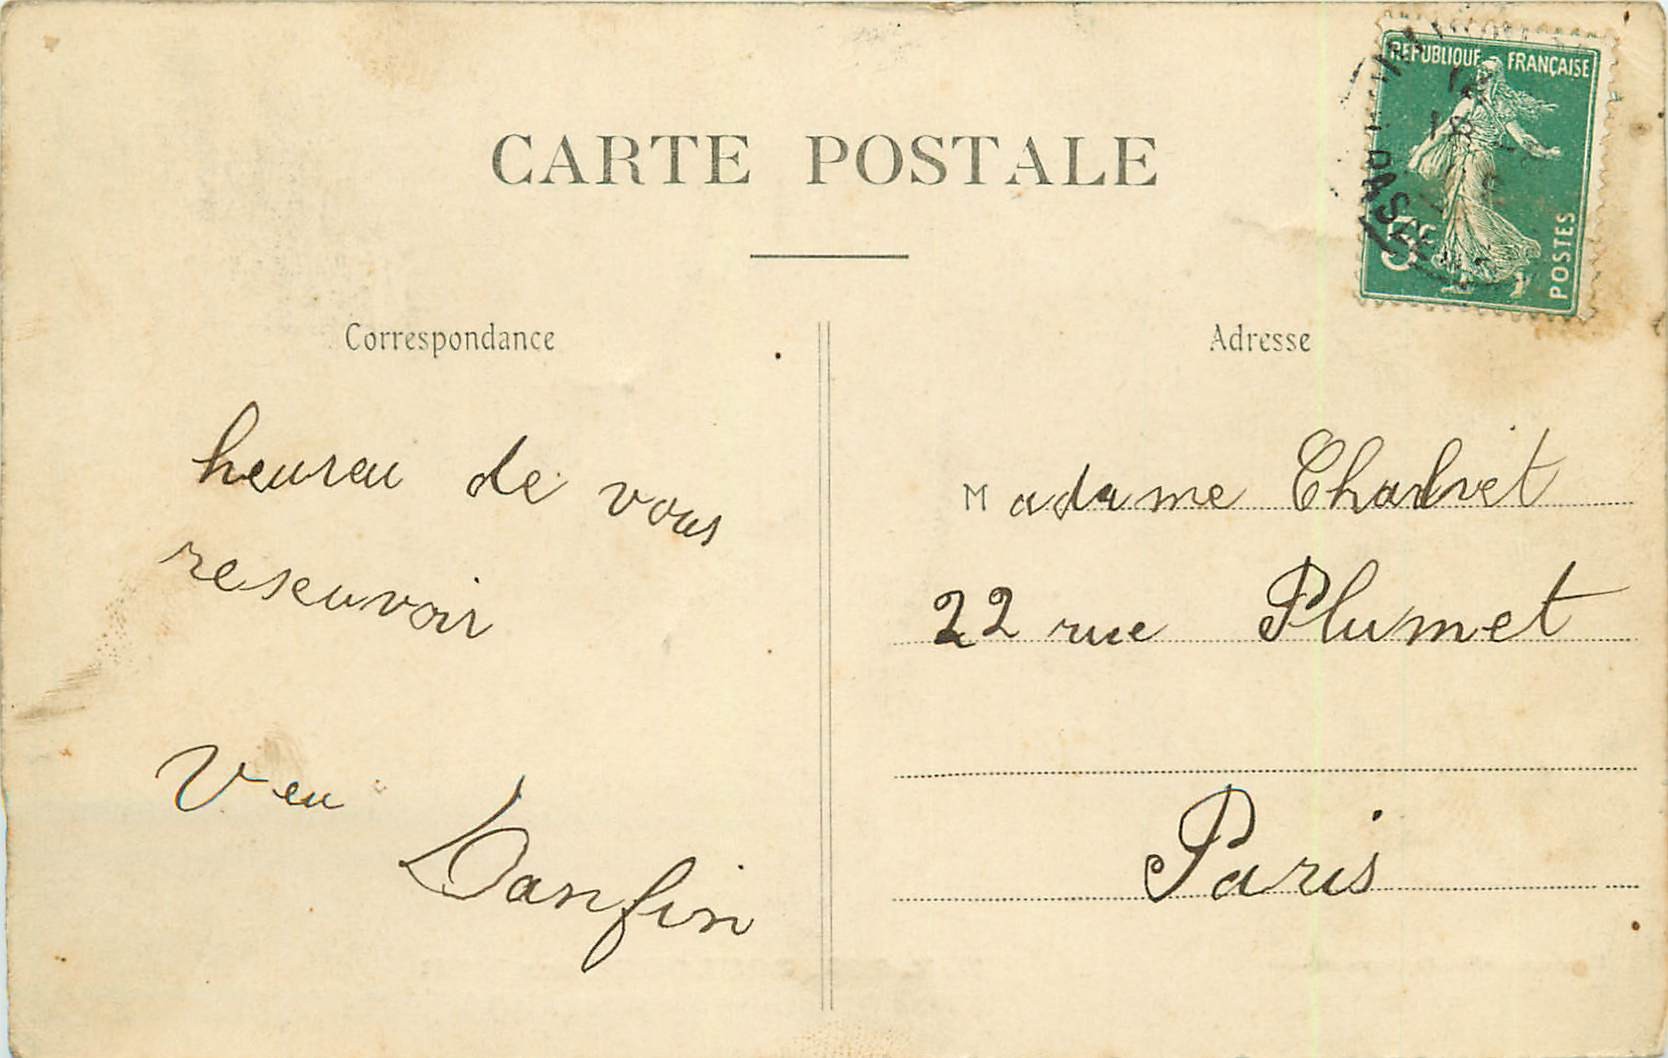 CARTE POSTALE
REPUBLIQUE FRANÇAISE
POSTES
Correspondance
heureu de vous
reseuvoir
Veu
Danfin
Adresse
Madame Chalvet
22 rue Plumet
Paris